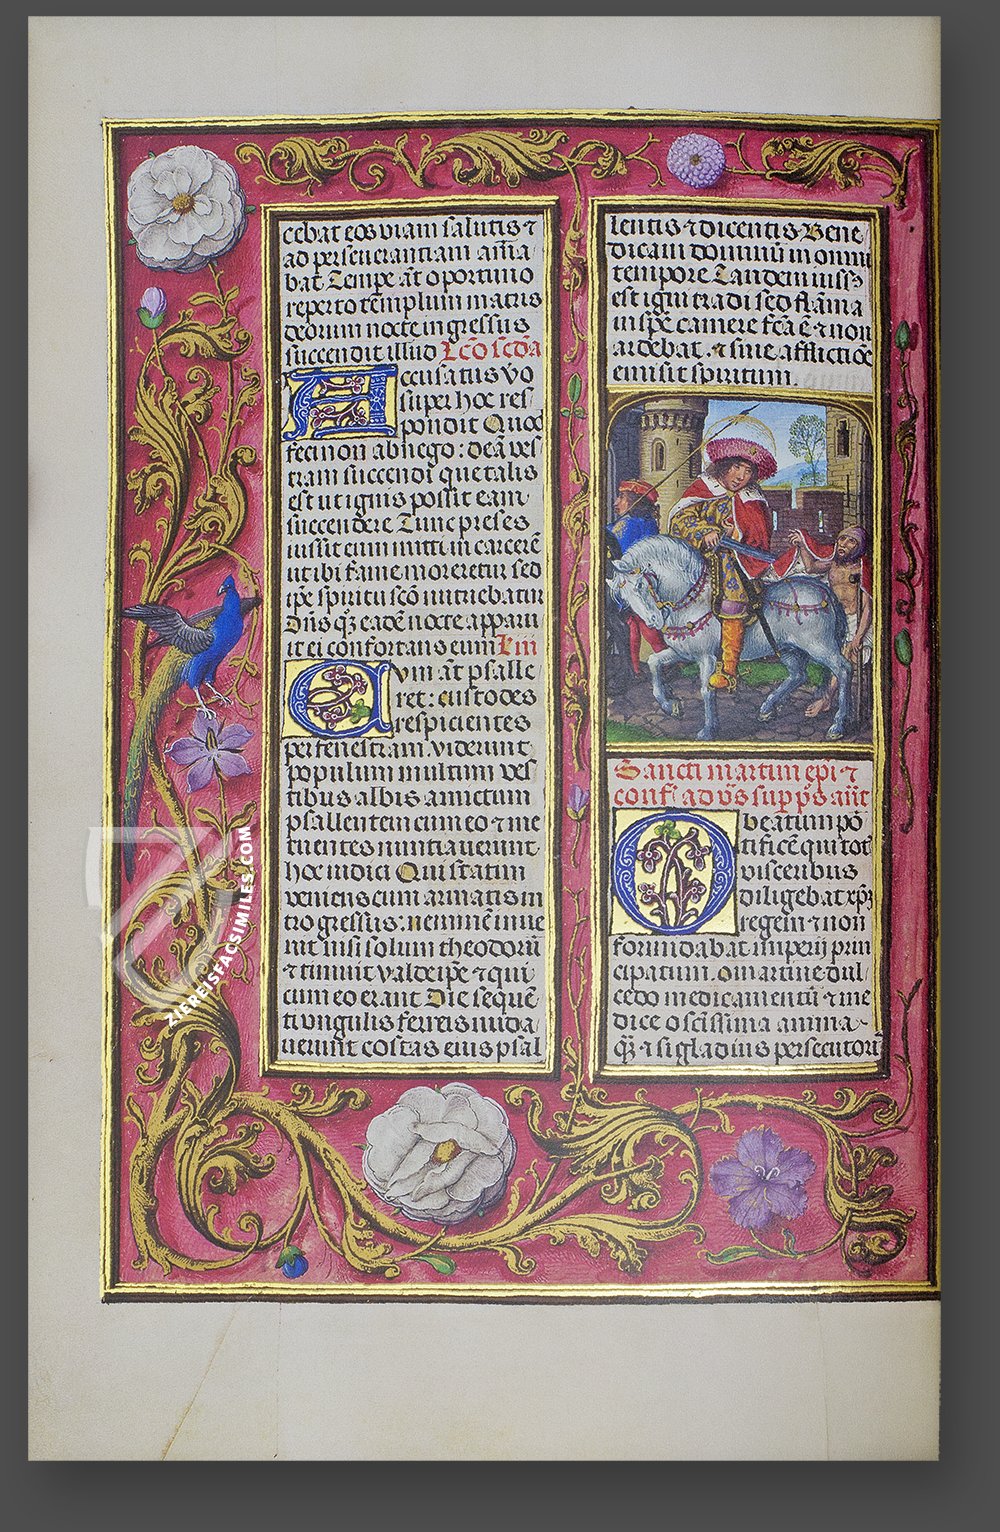 cebat eos viam salutis ⁊
ad perseverantiam am̄a
bat Tempe āt oportuno
reperto templum matris
deorum nocte ingressus
succendit illud Lc̄o sc̄da
Accusatus vo
super hoc res
pondit Quod
feci non abnego: deā ves
tram succendi que talis
est ut ignis possit eam
succendere Tunc preses
iussit eum mitti in carcerē
ut ibi fame moreretur sed
ip̄e spiritu sc̄o nutriebatur
Dn̄s qꝫ eadē nocte apparu
it ei confortans eum L iii
Cum āt psalle
ret: custodes
respicientes
per fenestram viderunt
populum multum ves
tibus albis amictum
psallentem cum eo ⁊ me
tuentes nuntiaverunt
hoc iudici Qui statim
veniens cum armatis in
trogressus: neminē inve
nit nisi solum theodorū
⁊ timuit valde ip̄e ⁊ qui
cum eo erant Die sequē
ti ungulis ferreis nuda
verunt costas eius psal
lentis ⁊ dicentis Bene
dicam dominū in omni
tempore Tandem iussꝫ
est igni tradi sed flāma
in spē camere fc̄a ē ⁊ non
ardebat. ⁊ sine afflictiōe
emisit spiritum.
Sancti martini ep̄i ⁊
conf̄ ad v̄s sup p̄s an̄t
O beatum pō
tificē qui totꝭ
visceribus
diligebat xp̄ꝫ
regem ⁊ non
formidabat imperii prin
cipatum. o martine dul
cedo medicamentū ⁊ me
dice o sc̄issima anima
q̄ꝫ ⁊ si gladius persecutori
ZIEREISFACSIMILES.COM